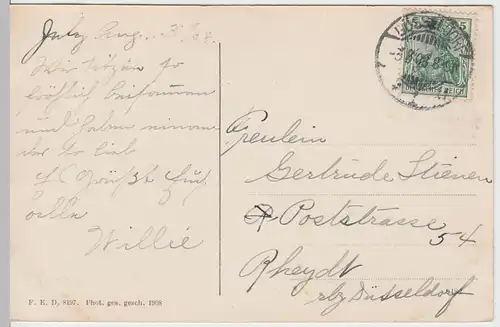 Wir sitzen so
fröhlich beisammen
und haben einan
der so lieb
Es Grüßt Euch
alle
Willie
F. K. D. 8197. Phot. ges. gesch. 1908
5
DEUTSCHES REICH
Freulein
Gertrude Stienen
Poststrasse
54
Rheydt
bz Düsseldorf